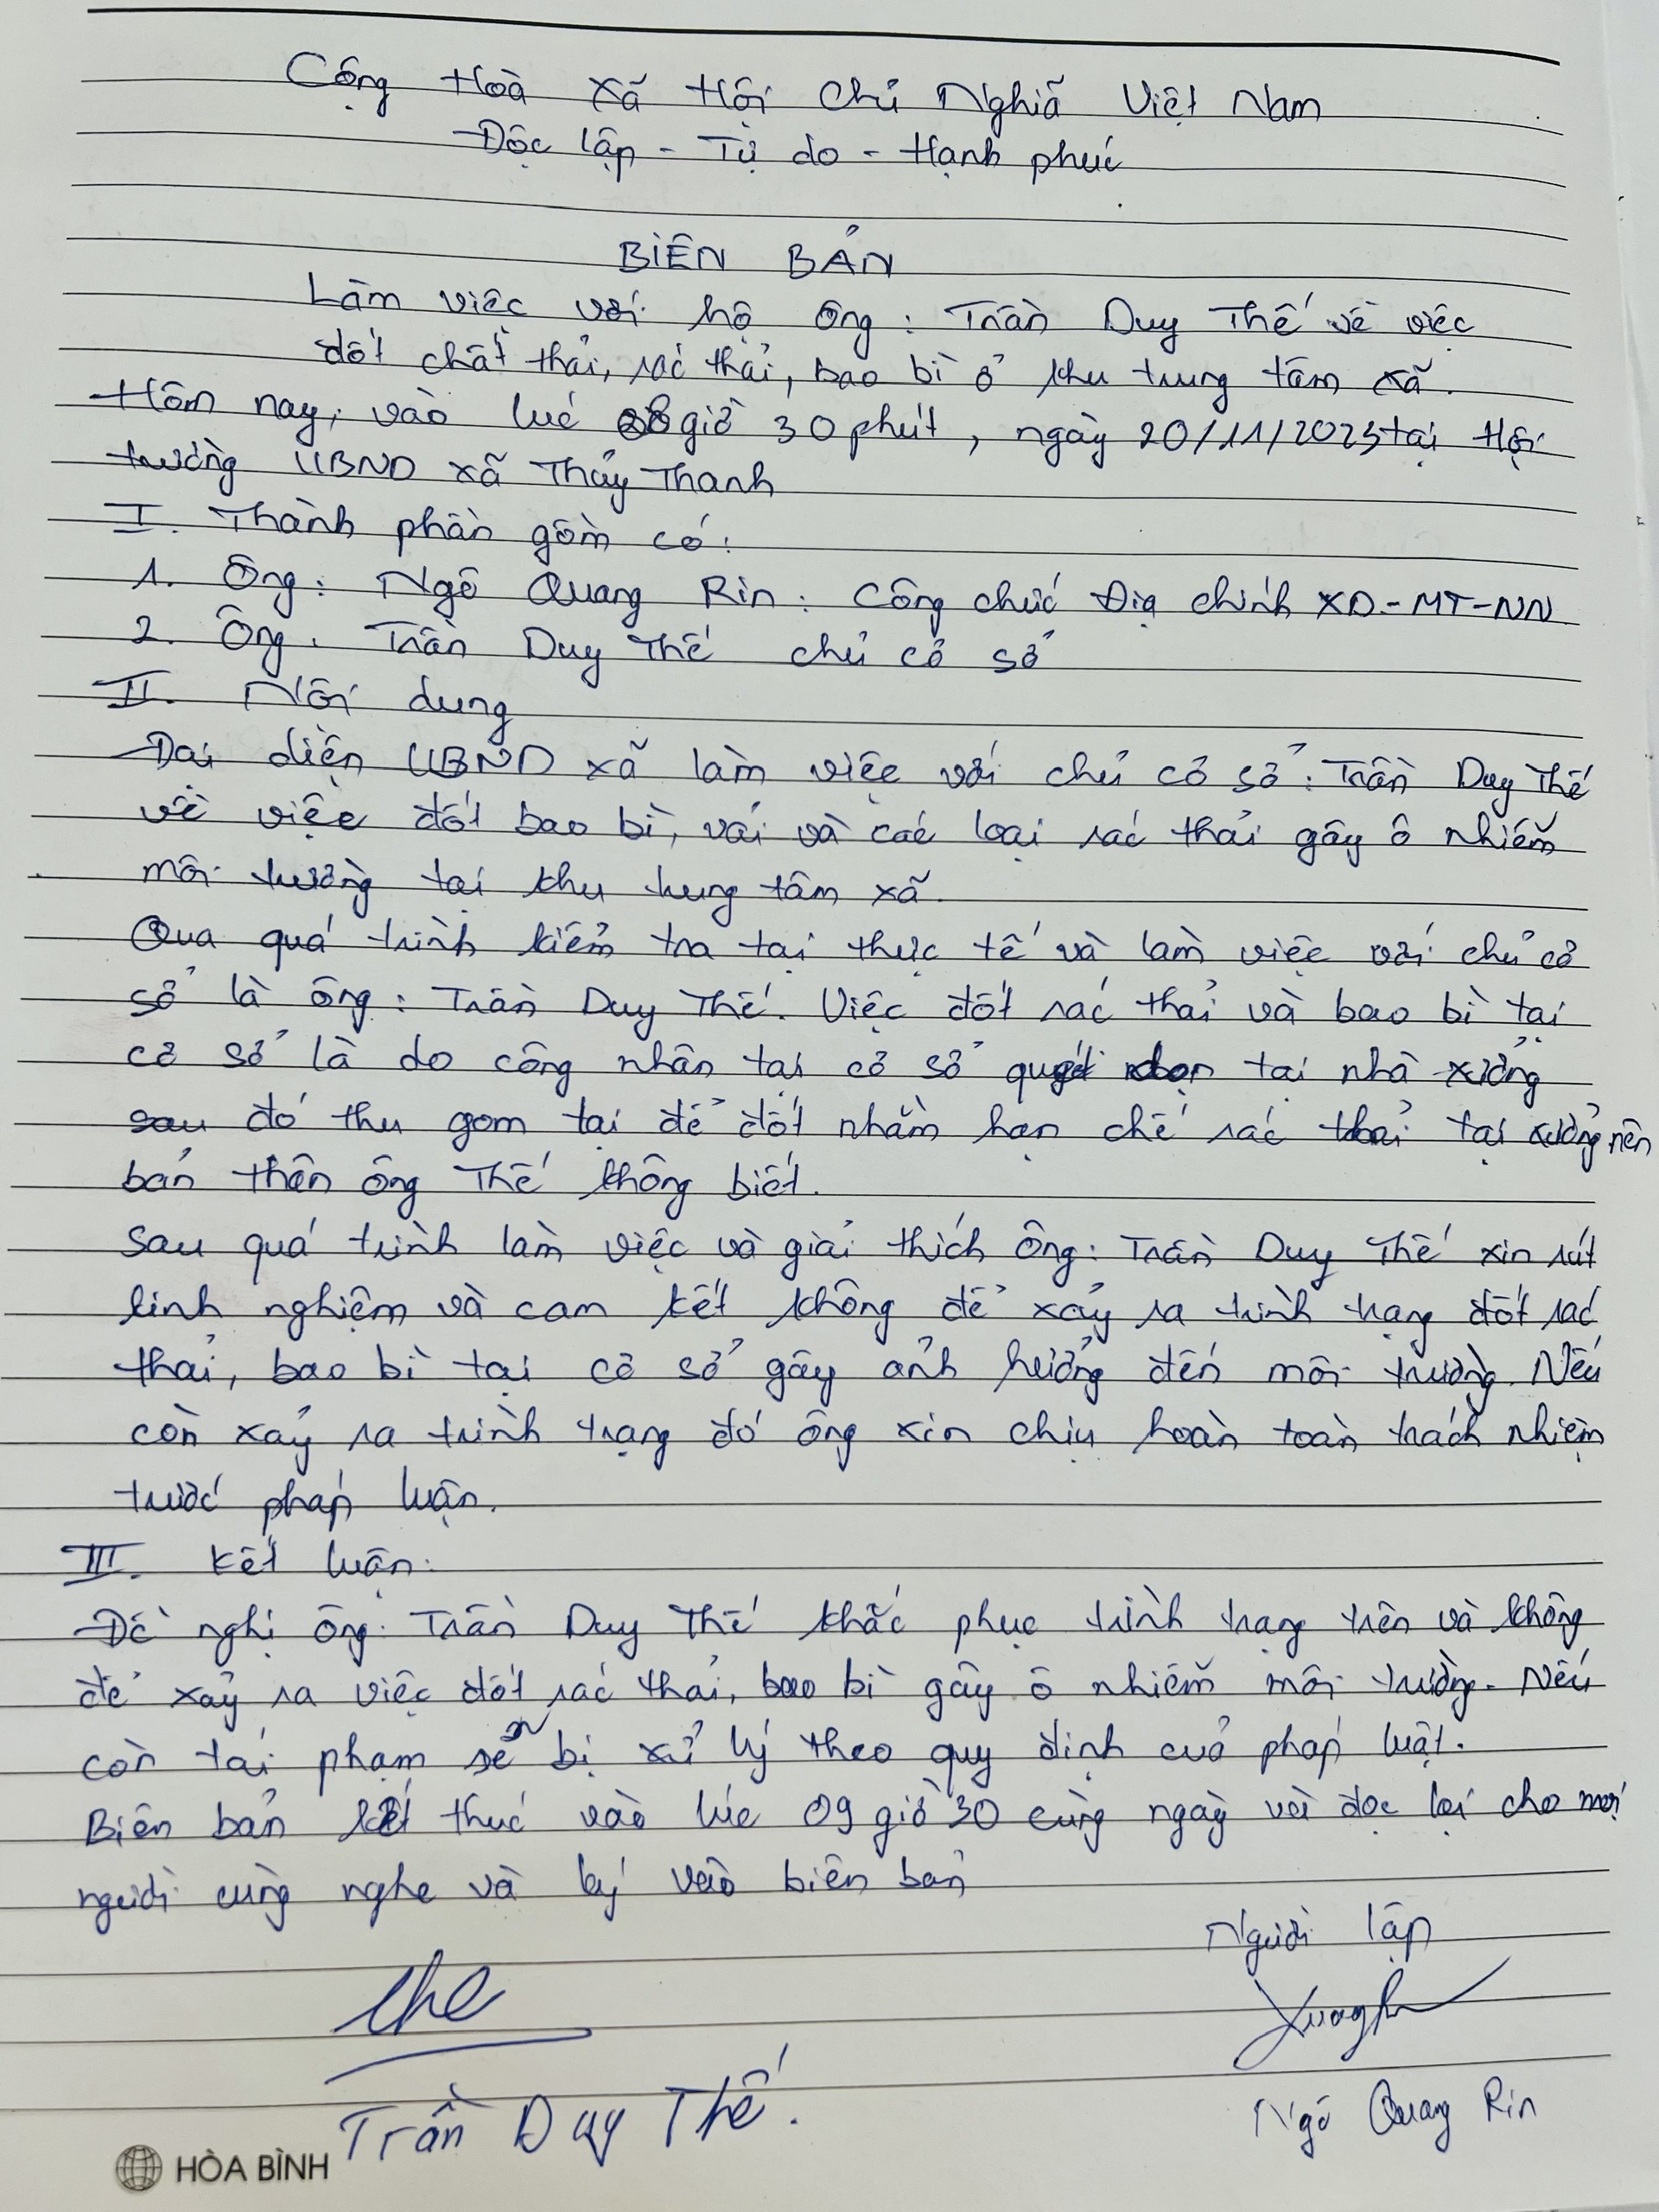 Cộng Hoà Xã Hội Chủ Nghiã Việt Nam
Độc lập - Tự do - Hạnh phúc
BIÊN BẢN
Làm việc với hộ ông: Trần Duy Thế về việc
đốt chất thải, rác thải, bao bì ở khu trung tâm xã.
Hôm nay, vào lúc 08 giờ 30 phút, ngày 20/11/2023 tại Hội
trường UBND xã Thủy Thanh
I. Thành phần gồm có:
1. Ông: Ngô Quang Rin: Công chức Địa chính XD-MT-NN
2. Ông: Trần Duy Thế chủ cơ sở
II. Nội dung
Đại diện UBND xã làm việc với chủ cơ sở: Trần Duy Thế
về việc đốt bao bì, vải và các loại rác thải gây ô nhiễm
môi trường tại khu trung tâm xã.
Qua quá trình kiểm tra tại thực tế và làm việc với chủ cơ
sở là ông: Trần Duy Thế. Việc đốt rác thải và bao bì tại
cơ sở là do công nhân tại cơ sở quét dọn tại nhà xưởng
sau đó thu gom tại để đốt nhằm hạn chế rác thải tại xưởng nên
bản thân ông Thế không biết.
Sau quá trình làm việc và giải thích ông: Trần Duy Thế xin rút
kinh nghiệm và cam kết không để xảy ra tình trạng đốt rác
thải, bao bì tại cơ sở gây ảnh hưởng đến môi trường. Nếu
còn xảy ra trình trạng đó ông xin chịu hoàn toàn trách nhiệm
trước pháp luận.
III. Kết luận:
Đề nghị ông: Trần Duy Thế khắc phục trình trạng trên và không
để xảy ra việc đốt rác thải, bao bì gây ô nhiễm môi trường. Nếu
còn tái phạm sẽ bị xử lý theo quy định của pháp luật.
Biên bản kết thúc vào lúc 09 giờ 30 cùng ngày và đọc lại cho mọi
người cùng nghe và ký vào biên bản
Người lập
Thế
Trần Duy Thế.
Ngô Quang Rin
HÒA BÌNH